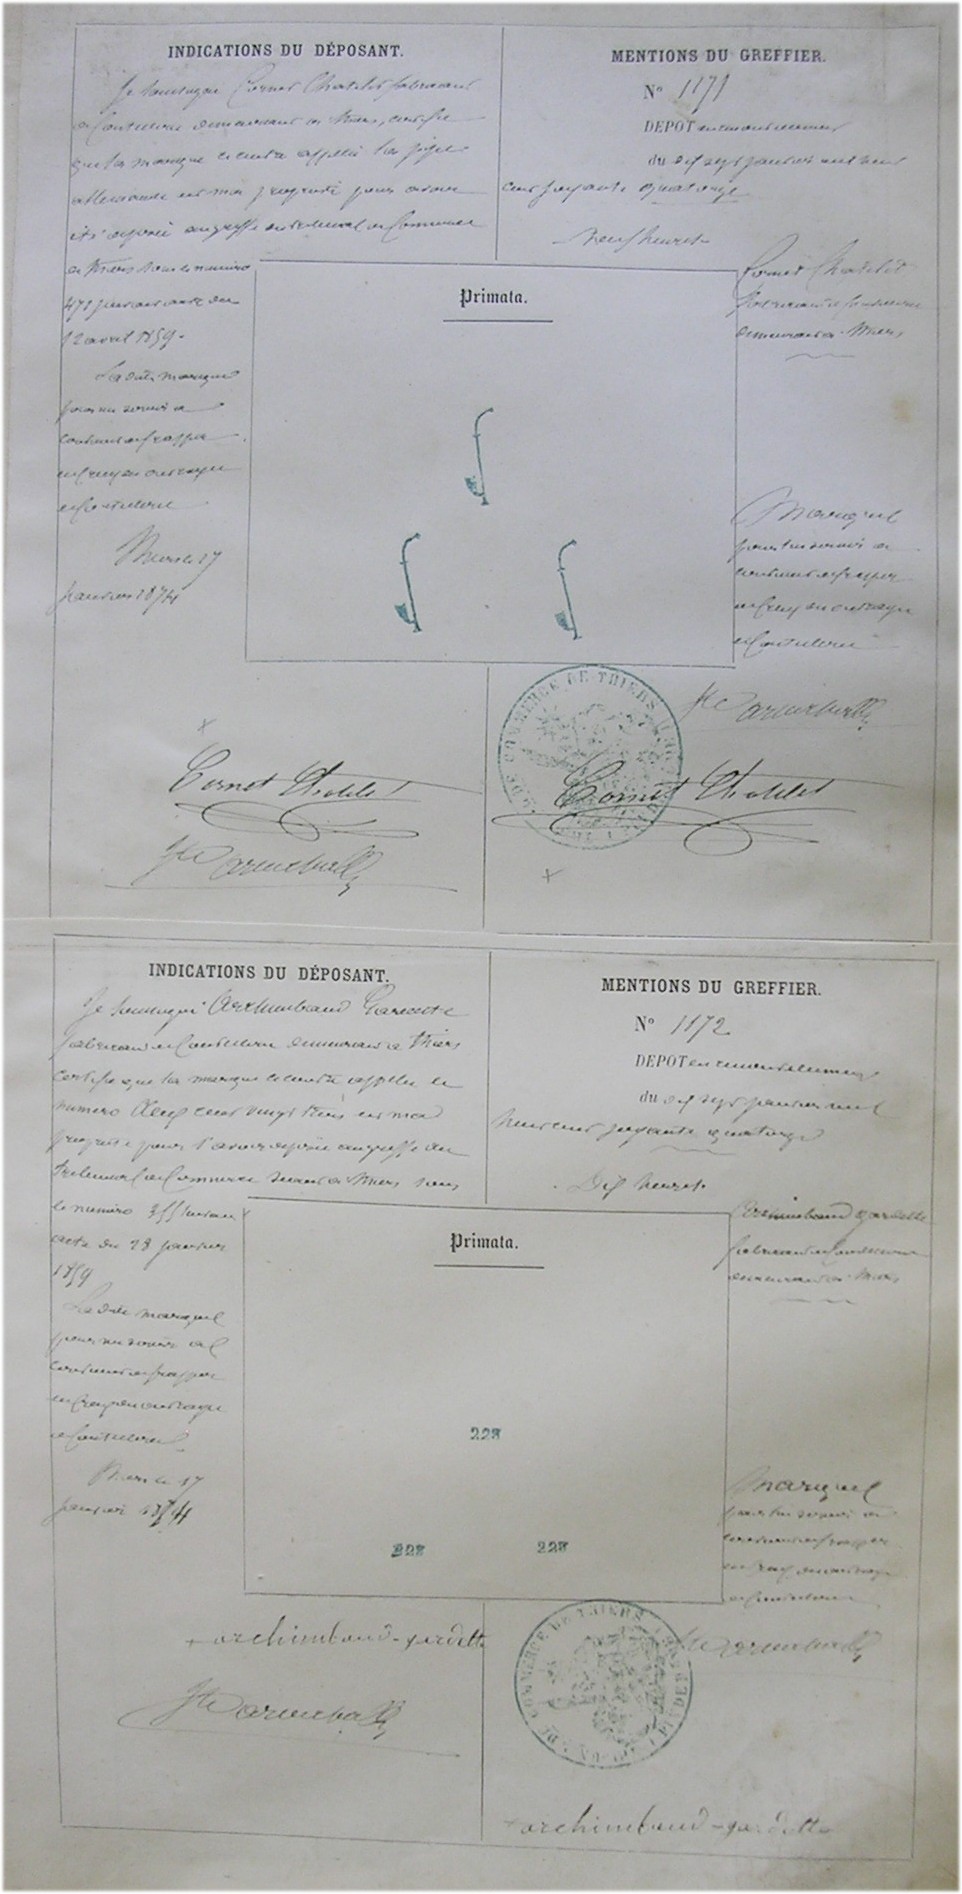 INDICATIONS DU DÉPOSANT.
Je soussigné Cornet Chatelet fabricant
de Coutellerie demeurant à Thiers, certifie
que la marque ci contre appelée la pipe
allemande est ma propriété pour avoir
été déposée au greffe du tribunal de Commerce
de Thiers sous le numéro
471 suivant acte du
12 avril 1859.
La dite marque
pour me servir à
continuer de frapper
en creux en ouvrages
de Coutellerie
Thiers le 17
Janvier 1874
Cornet Chatelet
MENTIONS DU GREFFIER.
N° 1171
DEPOT en renouvellement
du dix sept janvier mil huit
cent soixante quatorze
Neuf heures
Cornet Chatelet
fabricant de Coutellerie
demeurant à Thiers
Primata.
Marque
pour lui servir à
continuer de frapper
en creux en ouvrages
de Coutellerie
DE COMMERCE DE THIERS
Cornet Chatelet
INDICATIONS DU DÉPOSANT.
Je soussigné Archimbaud Gardette
fabricant de Coutellerie demeurant à Thiers
certifie que la marque ci contre appelée le
numéro deux cent vingt huit est ma
propriété pour l'avoir déposée au greffe du
tribunal de Commerce séant à Thiers sous
le numéro suivant
acte du 28 janvier
1859
La dite marque
pour me servir à
continuer de frapper
en creux en ouvrages
de Coutellerie
Thiers le 17
Janvier 1874
archimbaud-gardette
MENTIONS DU GREFFIER.
N° 1172
DEPOT en renouvellement
du dix sept janvier mil
huit cent soixante quatorze
Dix heures
Archimbaud gardette
fabricant de Coutellerie
demeurant à Thiers
Primata.
228
228 228
Marque
pour lui servir à
continuer de frapper
en creux en ouvrages
de Coutellerie
DE COMMERCE DE THIERS
archimbaud-gardette